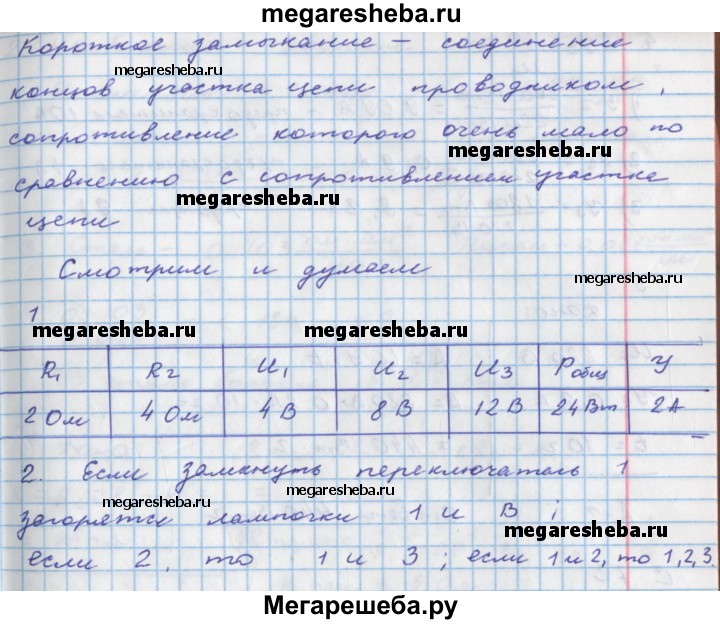 megaresheba.ru
Короткое замыкание – соединение
megaresheba.ru
концов участка цепи проводником,
сопротивление которого очень мало по
megaresheba.ru
сравнению с сопротивлением участка
megaresheba.ru
цепи
Смотрим и думаем
megaresheba.ru
1
megaresheba.ru megaresheba.ru
R1 R2 U1 U2 U3 Pобщ У
2 Ом 4 Ом 4 В 8 В 12 В 24 Вт 2 А
2. Если замкнуть переключатель 1
megaresheba.ru megaresheba.ru
загорятся лампочки 1 и В ;
megaresheba.ru
если 2, то 1 и 3 ; если 1 и 2, то 1,2,3.
Мегарешеба.ру